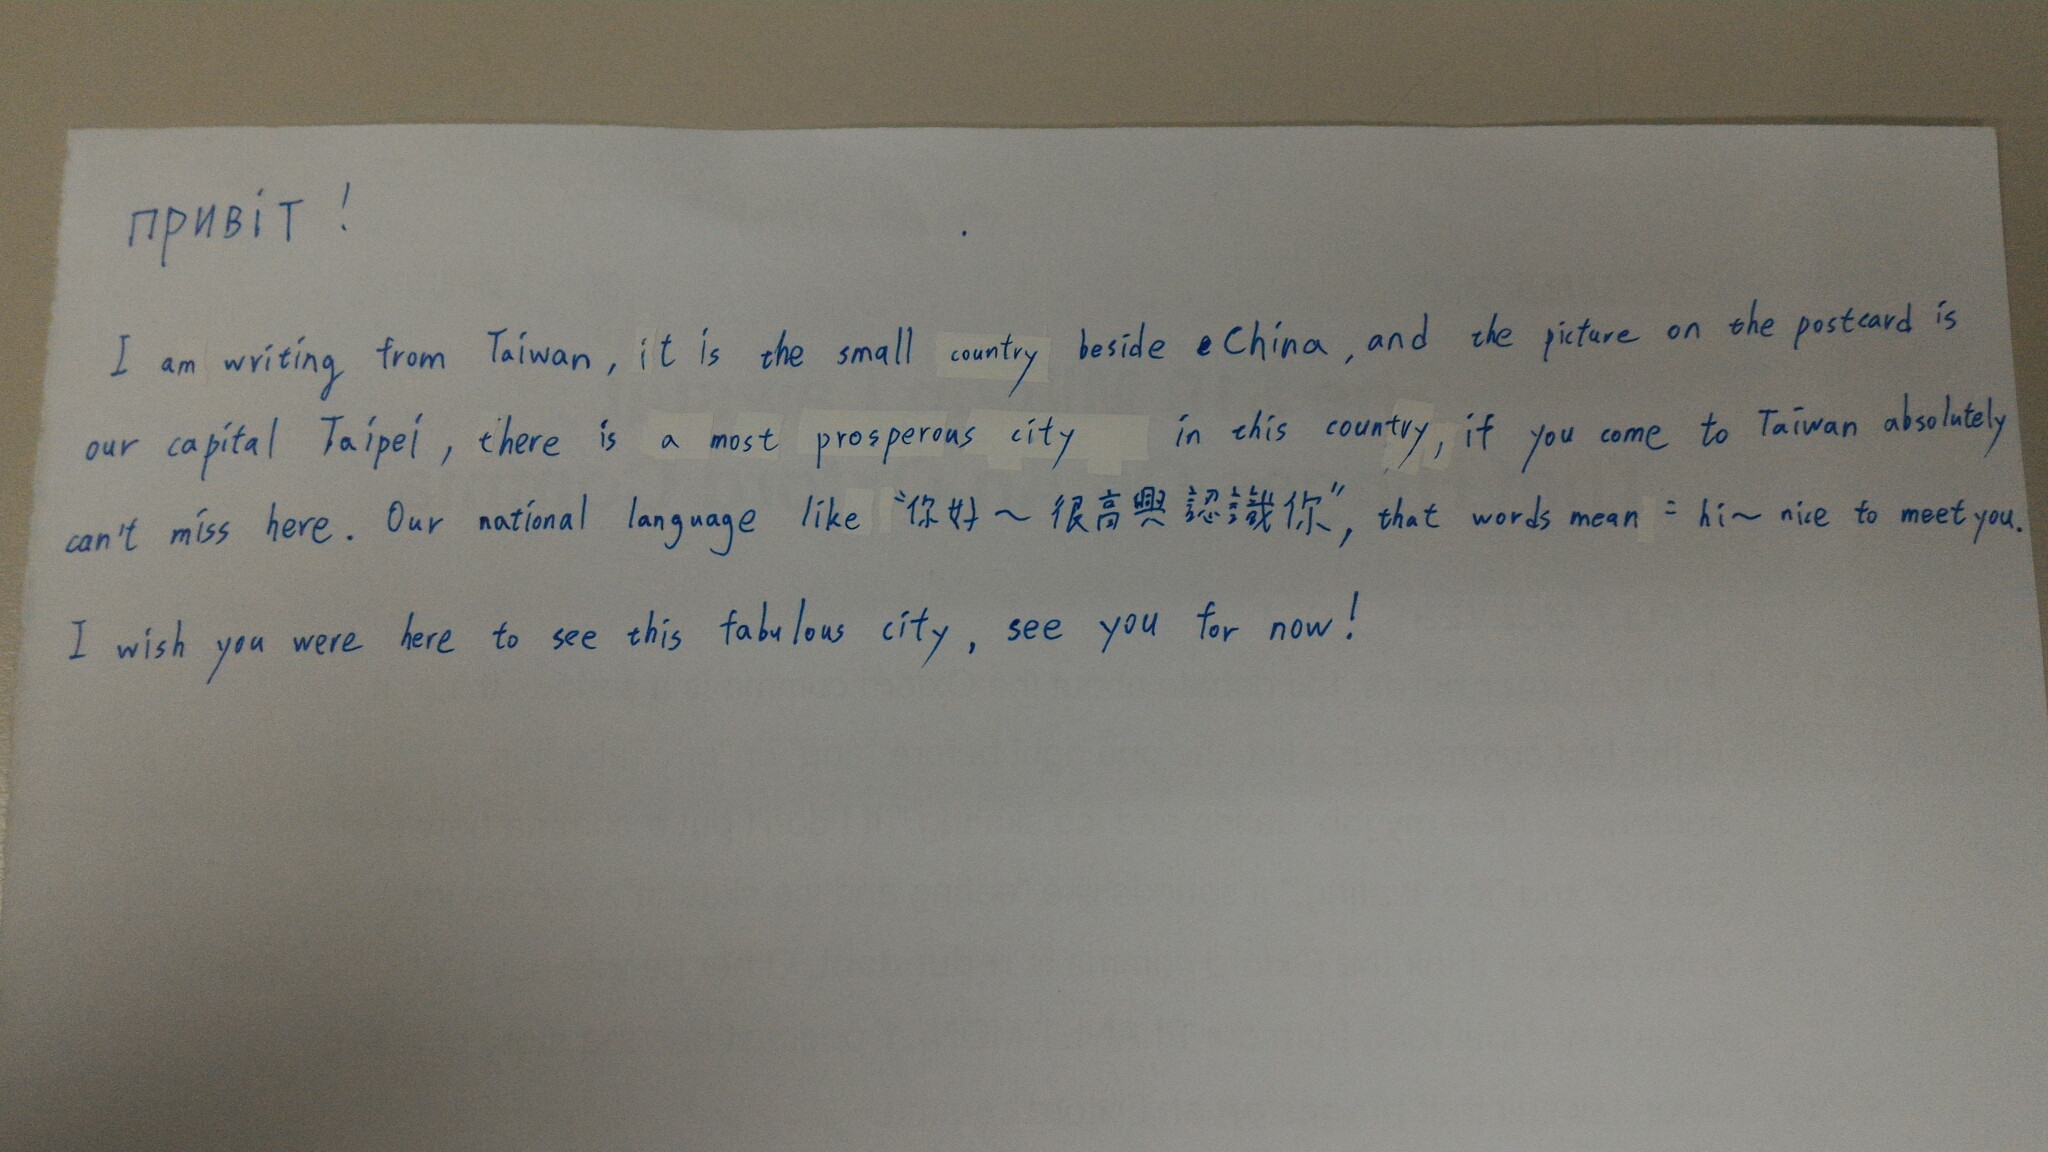 привіт !
I am writing from Taiwan, it is the small country beside China, and the picture on the postcard is
our capital Taipei, there is a most prosperous city in this country, if you come to Taiwan absolutely
can't miss here. Our national language like "你好～很高興認識你", that words mean = hi~ nice to meet you.
I wish you were here to see this fabulous city, see you for now!